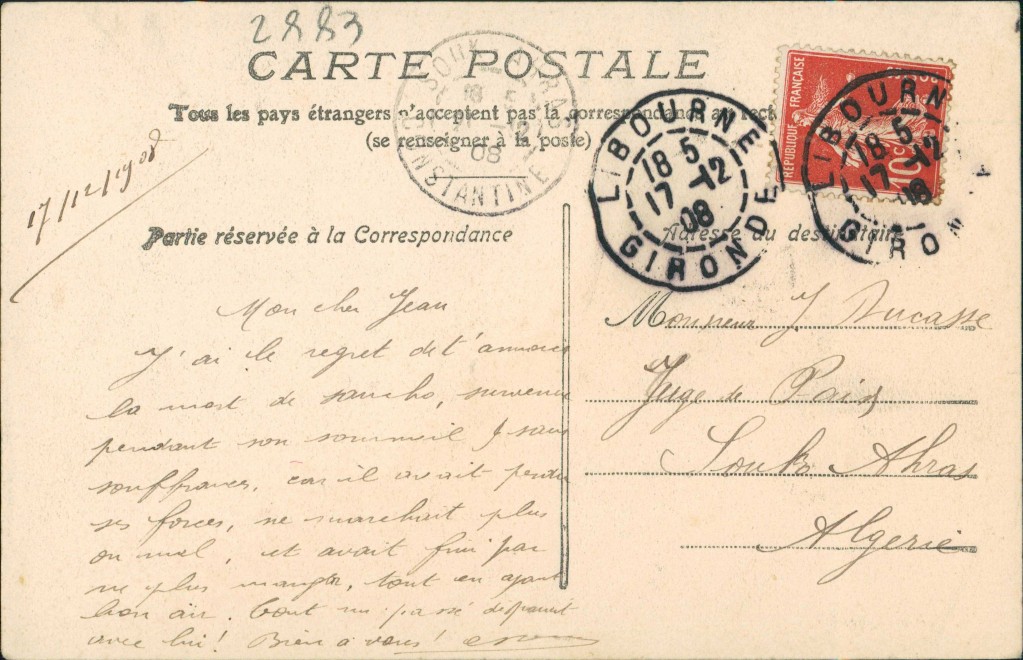 2883
CARTE POSTALE
Tous les pays étrangers n'acceptent pas la correspondance au rect
(se renseigner à la poste)
SOUK AHRAS
08
CONSTANTINE
LIBOURNE
18 5
17 -12
08
GIRONDE
REPUBLIQUE FRANÇAISE
10c
LIBOURN
18 5
17 -12
08
GIRON
17/12/1908
Partie réservée à la Correspondance
Adresse du destinataire
Mon cher Jean
J'ai le regret de t'annonce
la mort de Sancho, survenue
pendant son sommeil & sans
souffrances, car il avait perdu
ses forces, ne marchait plus
ou mal, et avait fini par
ne plus manger, tout en ayant
bon air. Tout un passé disparait
avec lui! Bien à vous!
Monsieur J Ducasse
Juge de Paix
Souks Ahras
Algerie